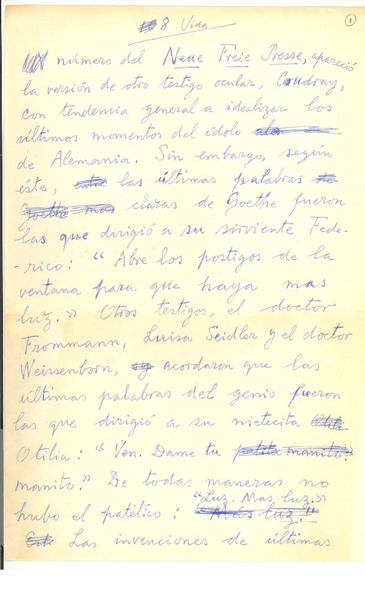 8 Vida
1
número del Neue Freie Presse, apareció
la versión de otro testigo ocular, Coudray,
con tendencia general a idealizar los
últimos momentos del ídolo
de Alemania. Sin embargo, según
éste, las últimas palabras
claras de Goethe fueron
las que dirigió a su sirviente Fede-
-rico: "Abre los postigos de la
ventana para que haya mas
luz." Otros testigos, el doctor
Frommann, Luisa Seidler y el doctor
Weissenborn, acordaron que las
últimas palabras del genio fueron
las que dirigió a su nietecita
Otilia: "Ven. Dame tu
manito." De todas maneras no
"Luz. Mas luz."
hubo el patético:
Las invenciones de últimas